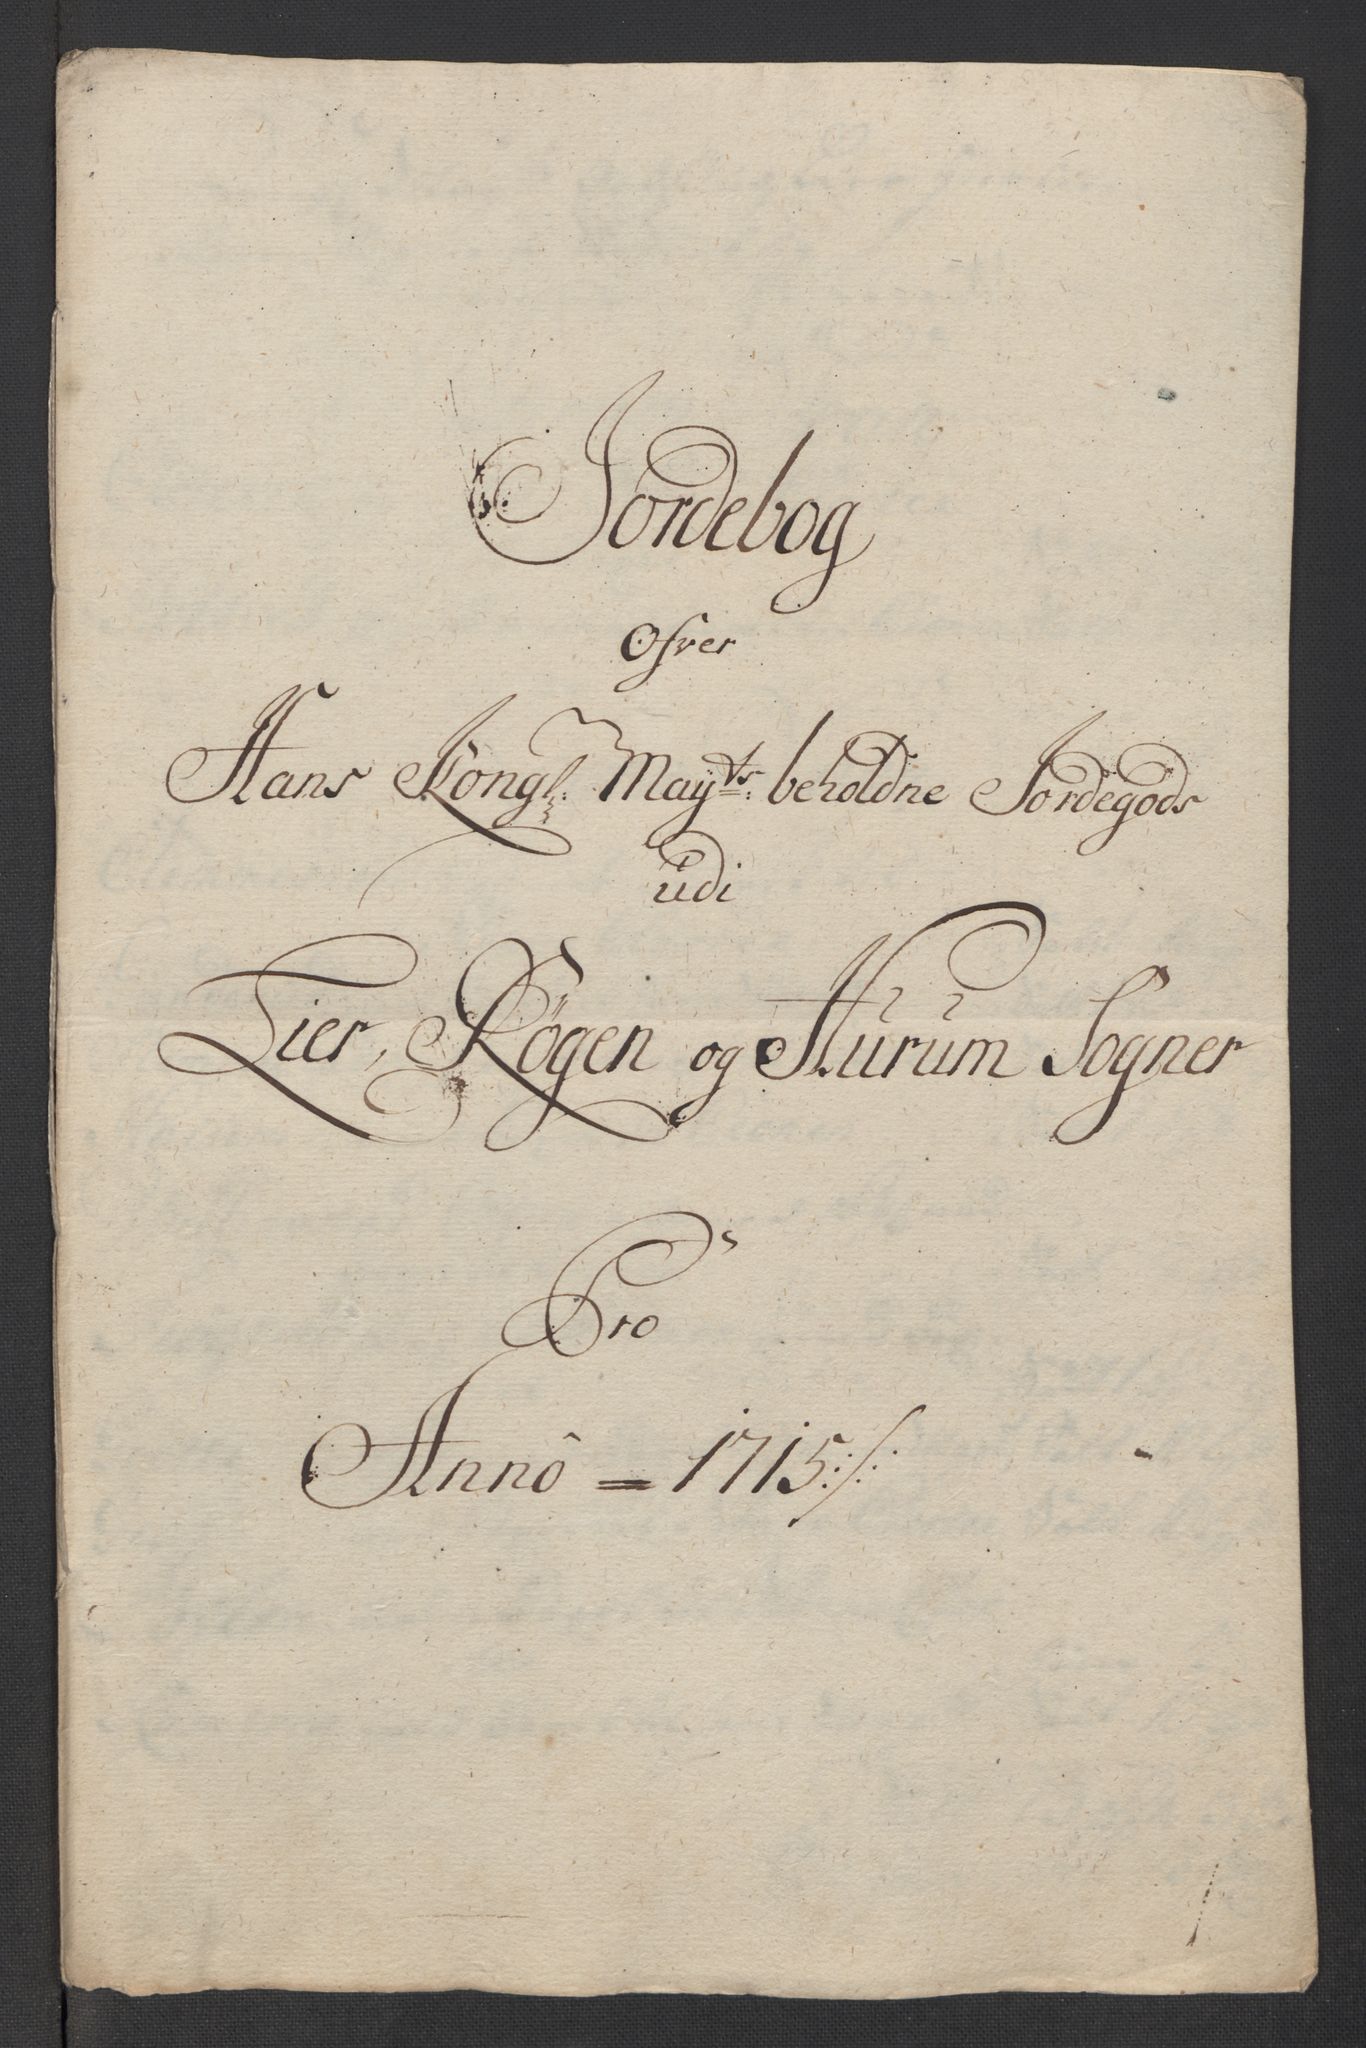 Jordebog
Ofver
Hans Kongl: Mayts: beholdne Jordegods
udi
Lier, Rögen og Hurum Sogner
Pro
Annô = 1715:/: